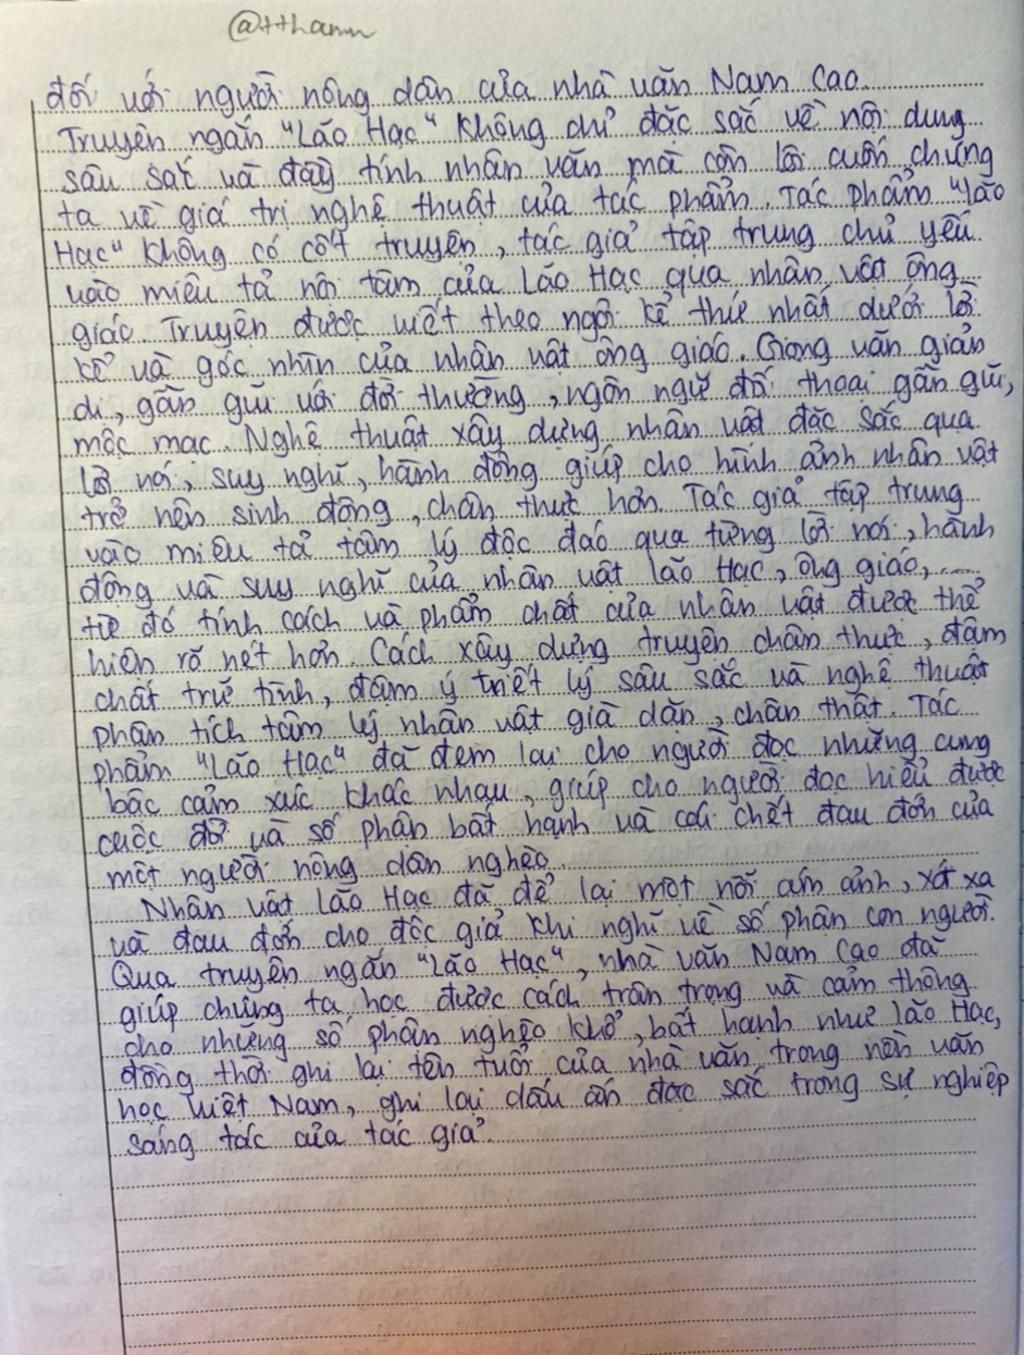 @tthamn
đối với người nông dân của nhà văn Nam Cao.
Truyện ngắn "Lão Hạc" không chỉ đặc sắc về nội dung
sâu sắc và đầy tính nhân văn mà còn lôi cuốn chúng
ta về giá trị nghệ thuật của tác phẩm. Tác phẩm "Lão
Hạc" không có cốt truyện, tác giả tập trung chủ yếu
vào miêu tả nội tâm của Lão Hạc qua nhân vật ông
giáo. Truyện được viết theo ngôi kể thứ nhất dưới lời
kể và góc nhìn của nhân vật ông giáo. Giọng văn giản
dị, gần gũi với đời thường, ngôn ngữ đối thoại gần gũi,
mộc mạc. Nghệ thuật xây dựng nhân vật đặc sắc qua
lời nói, suy nghĩ, hành động giúp cho hình ảnh nhân vật
trở nên sinh động, chân thực hơn. Tác giả tập trung
vào miêu tả tâm lý độc đáo qua từng lời nói, hành
động và suy nghĩ của nhân vật lão Hạc, ông giáo,.....
từ đó tính cách và phẩm chất của nhân vật được thể
hiện rõ nét hơn. Cách xây dựng truyện chân thực, đậm
chất trữ tình, đậm ý triết lý sâu sắc và nghệ thuật
phân tích tâm lý nhân vật già dặn, chân thật. Tác
phẩm "Lão Hạc" đã đem lại cho người đọc những cung
bậc cảm xúc khác nhau, giúp cho người đọc hiểu được
cuộc đời và số phận bất hạnh và cái chết đau đớn của
một người nông dân nghèo.
Nhân vật lão Hạc đã để lại một nỗi ám ảnh, xót xa
và đau đớn cho độc giả khi nghĩ về số phận con người.
Qua truyện ngắn "Lão Hạc", nhà văn Nam Cao đã
giúp chúng ta học được cách trân trọng và cảm thông
cho những số phận nghèo khổ, bất hạnh như lão Hạc,
đồng thời ghi lại tên tuổi của nhà văn trong nền văn
học Việt Nam, ghi lại dấu ấn đặc sắc trong sự nghiệp
sáng tác của tác giả.